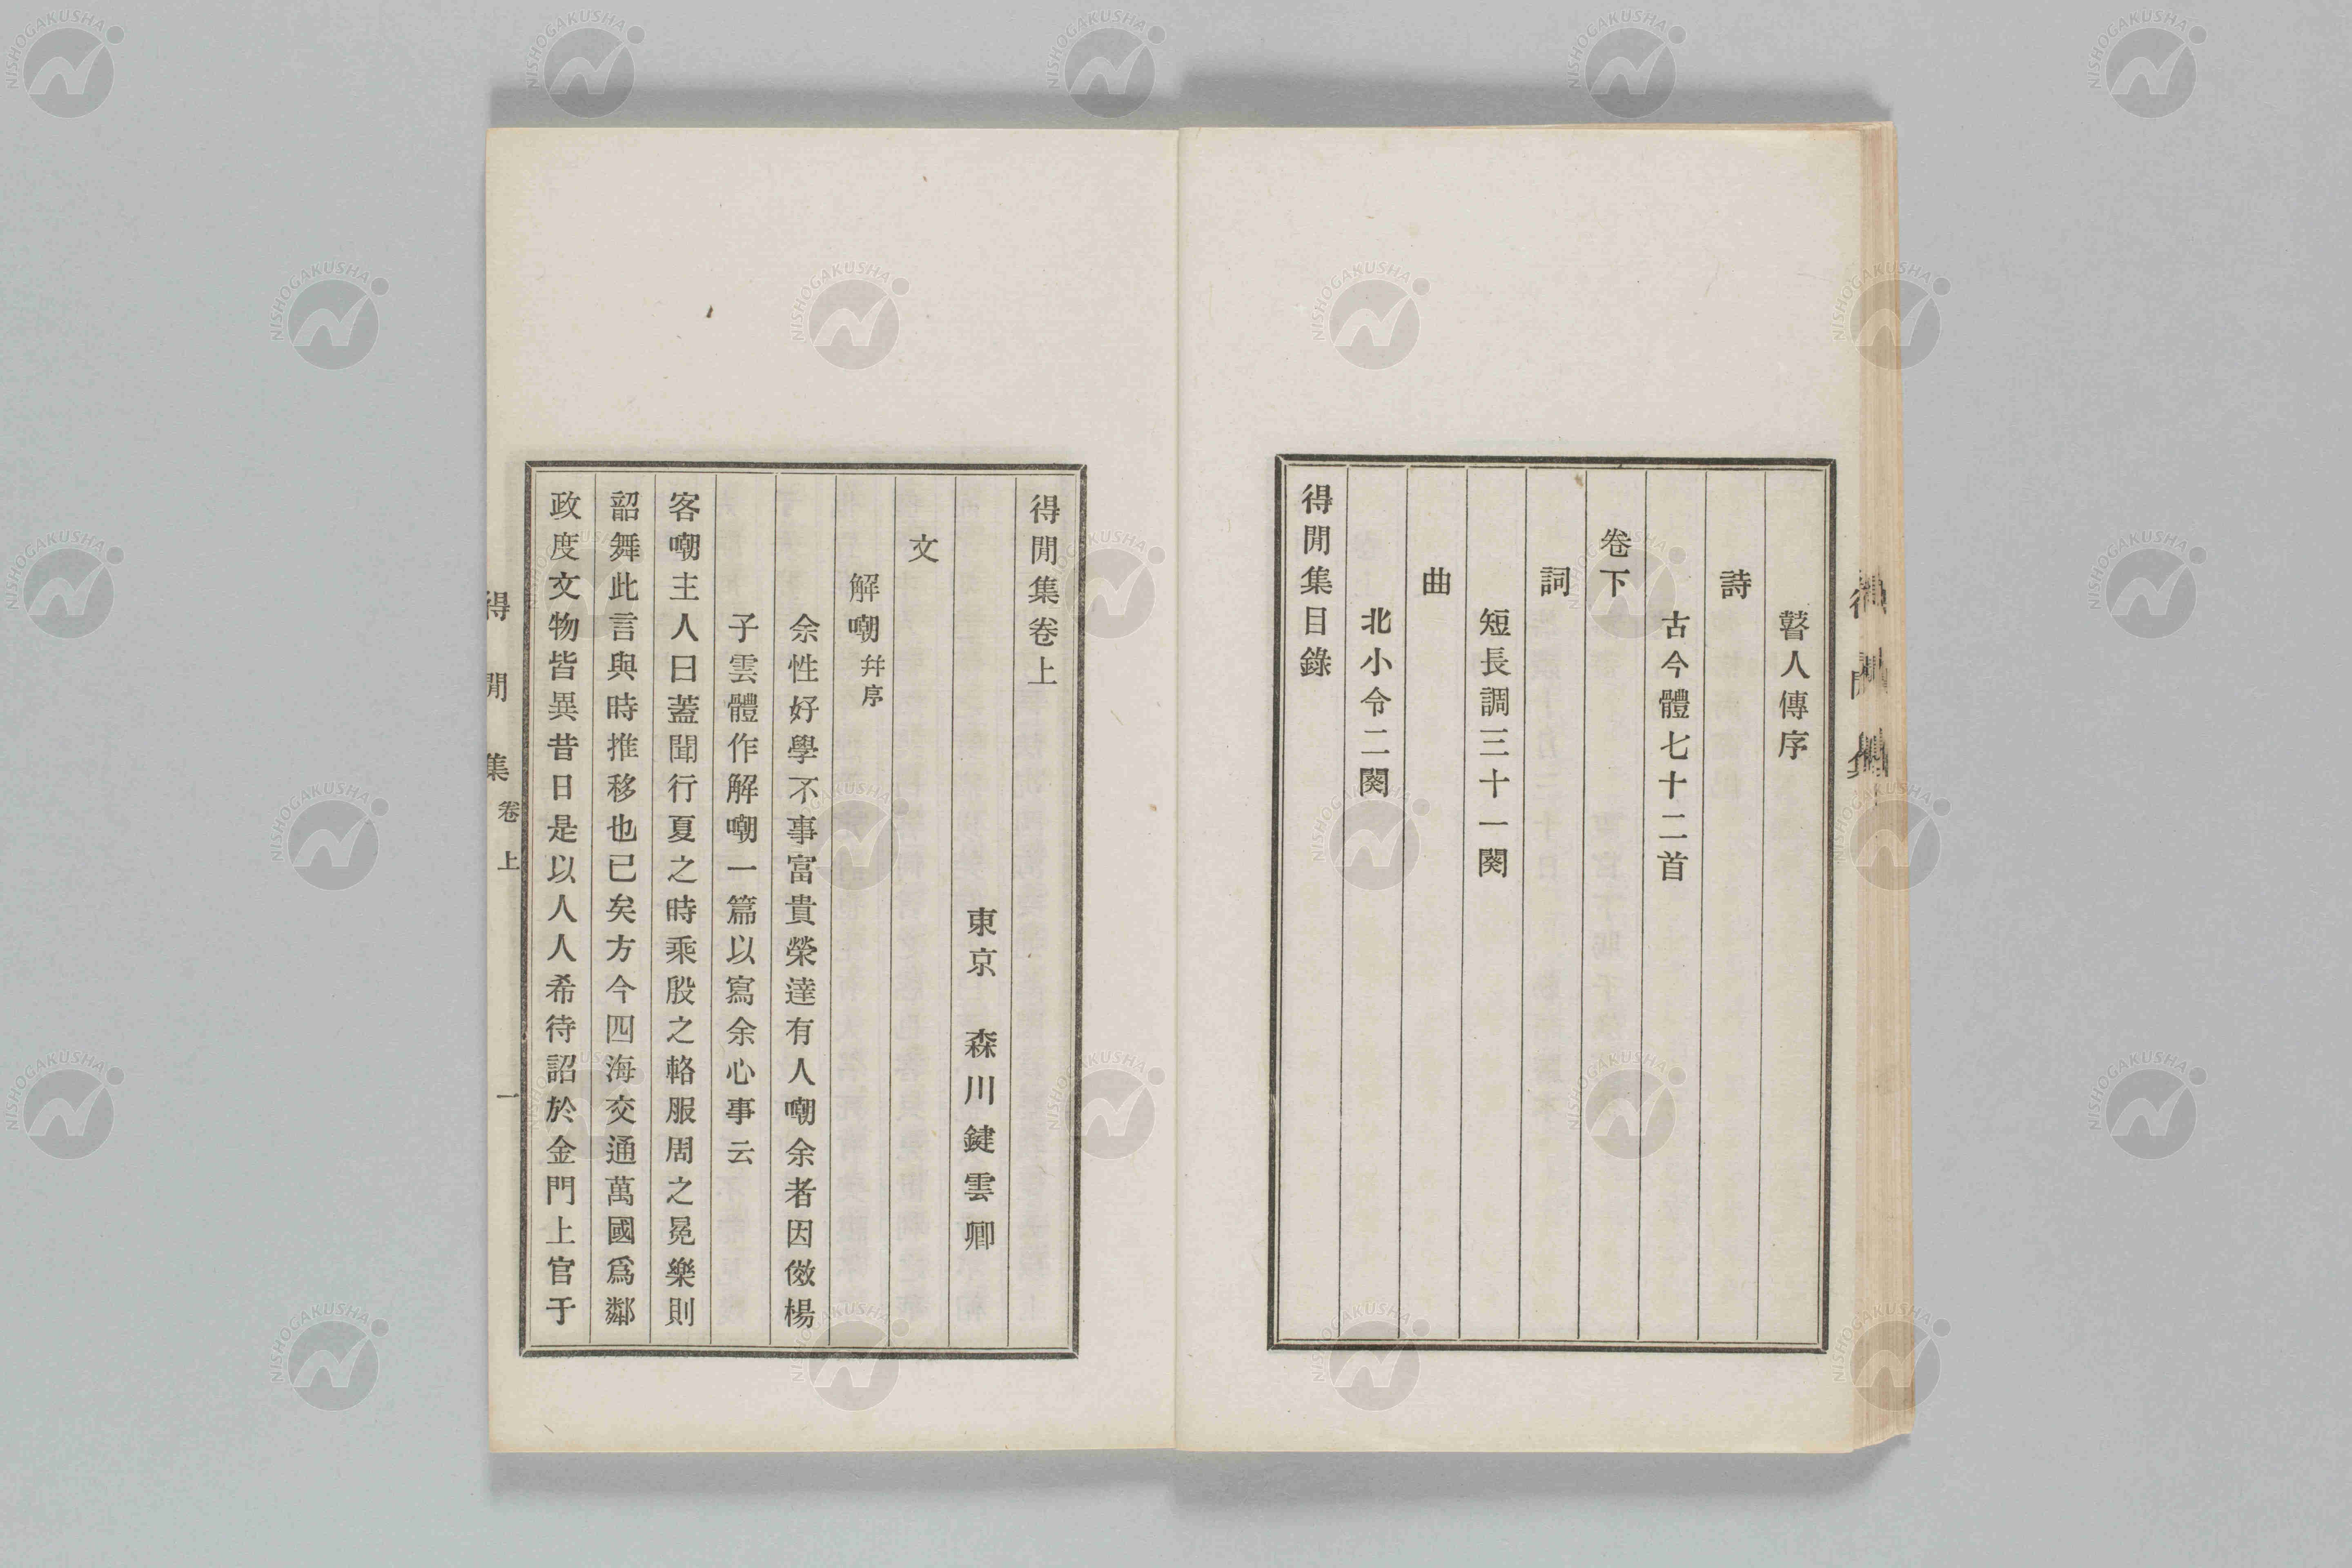 瞽人傳序
詩
古今體七十二首
卷下
詞
短長調三十一闋
曲
北小令二闋
得閒集目錄
得閒集卷上
東京 森川鍵雲卿
文
解嘲幷序
余性好學不事富貴榮達有人嘲余者因傚楊
子雲體作解嘲一篇以寫余心事云
客嘲主人曰蓋聞行夏之時乘殷之輅服周之冕樂則
韶舞此言與時推移也已矣方今四海交通萬國爲鄰
政度文物皆異昔日是以人人希待詔於金門上官于
得閒集 卷上 一
NISHOGAKUSHA